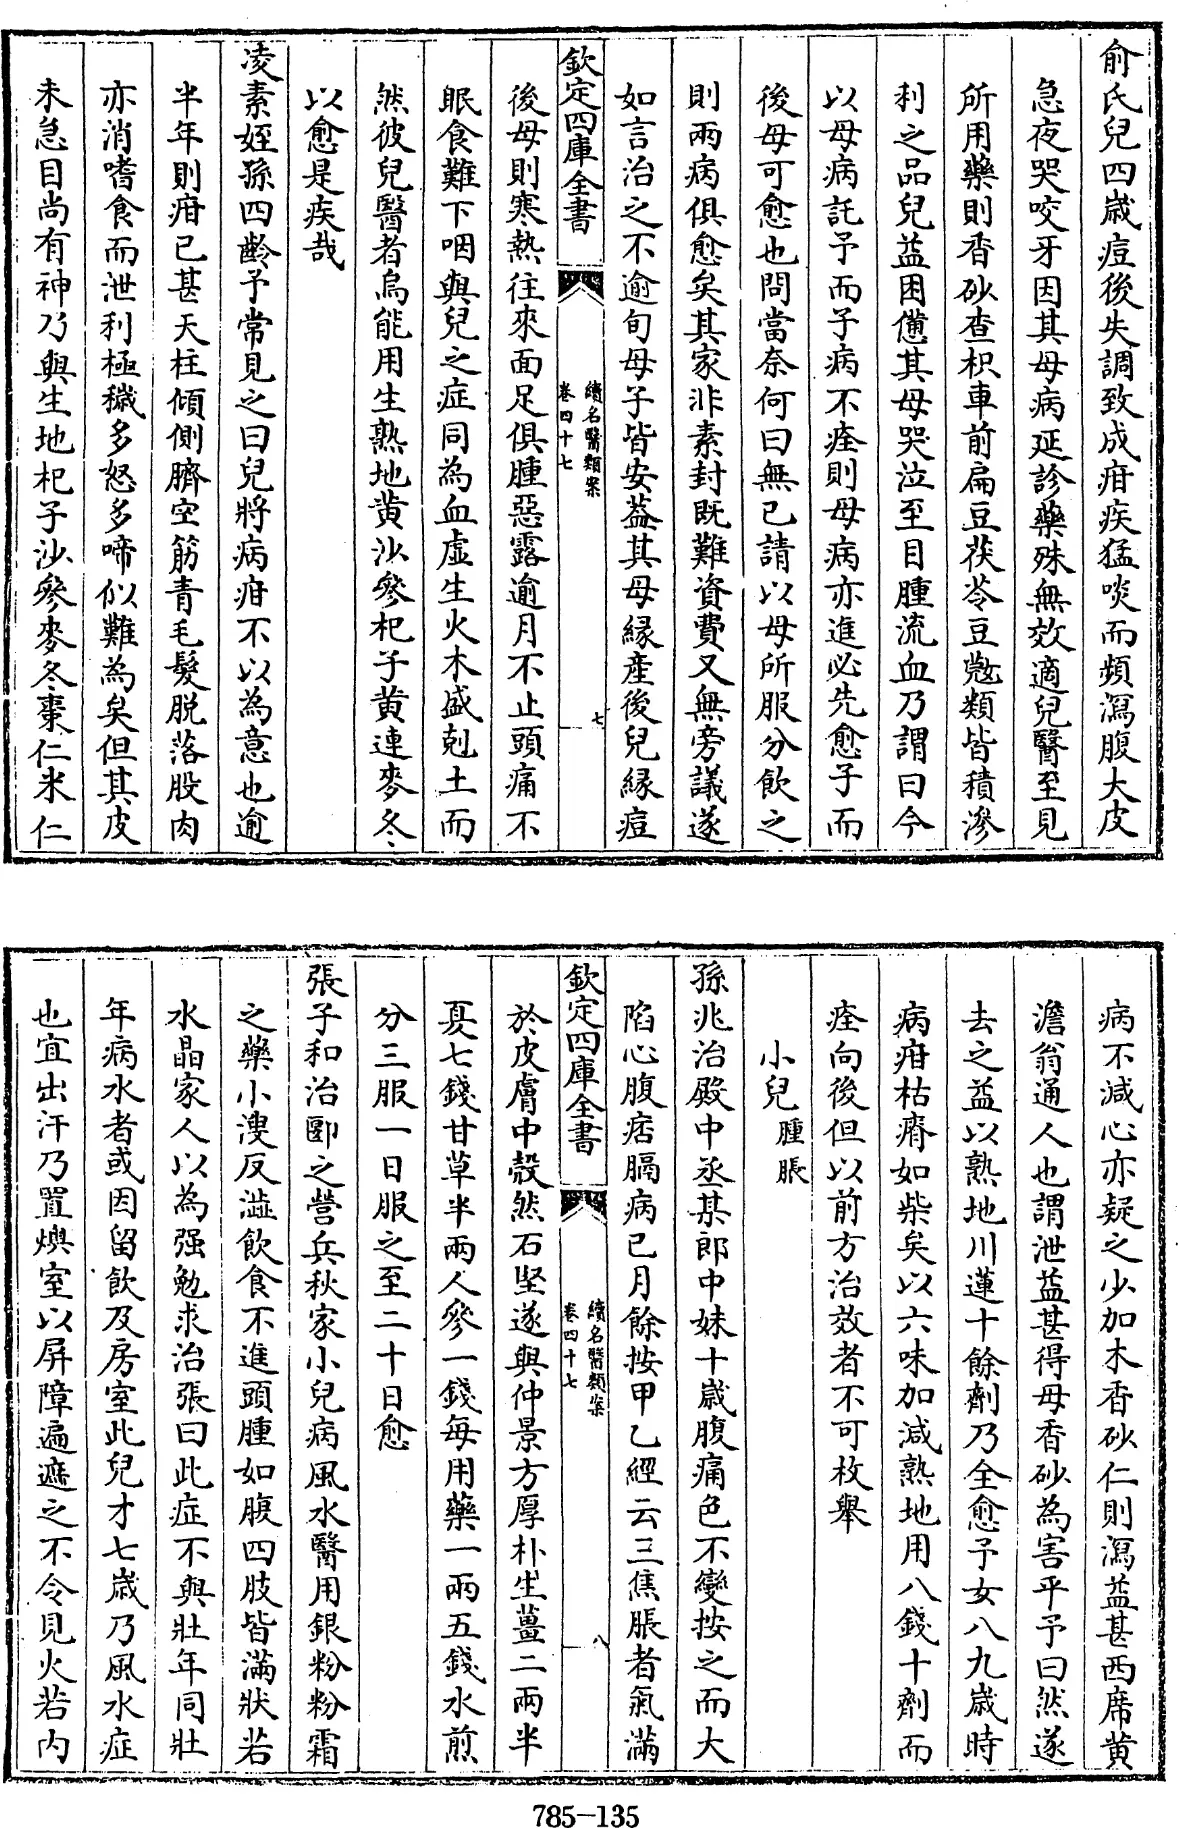 俞氏兒四歲痘後失調致成疳疾猛啖而頻瀉腹大皮
急夜哭咬牙因其母病延診藥殊無效適兒醫至見
所用藥則香砂查枳車前扁豆茯苓豆殼類皆積滲
利之品兒益困憊其母哭泣至目腫流血乃謂曰今
以母病託予而子病不痊則母病亦進必先愈子而
後母可愈也問當奈何曰無已請以母所服分飲之
則兩病俱愈矣其家非素封既難資費又無旁議遂
如言治之不逾旬母子皆安葢其母緣產後兒緣痘
欽定四庫全書
續名醫類案
卷四十七
七
後母則寒熱往來面足俱腫惡露逾月不止頭痛不
眠食難下咽與兒之症同為血虛生火木盛剋土而
然彼兒醫者烏能用生熟地黄沙參杞子黄連麥冬
以愈是疾哉
凌素姪孫四齡予常見之曰兒將病疳不以為意也逾
半年則疳已甚天柱傾側臍空筋青毛髮脫落股肉
亦消嗜食而泄利極穢多怒多啼似難為矣但其皮
未急目尚有神乃與生地杞子沙參麥冬棗仁米仁
病不減心亦疑之少加木香砂仁則瀉益甚西席黄
澹翁通人也謂泄益甚得毋香砂為害乎予曰然遂
去之益以熟地川蓮十餘劑乃全愈予女八九歲時
病疳枯瘠如柴矣以六味加減熟地用八錢十劑而
痊向後但以前方治效者不可枚舉
小兒腫脹
孫兆治殿中丞某郎中妹十歲腹痛色不變按之而大
陷心腹痞膈病已月餘按甲乙經云三焦脹者氣滿
欽定四庫全書
續名醫類案
卷四十七
八
於皮膚中殼然石堅遂與仲景方厚朴生薑二兩半
夏七錢甘草半兩人參一錢每用藥一兩五錢水煎
分三服一日服之至二十日愈
張子和治郾之營兵秋家小兒病風水醫用銀粉粉霜
之藥小溲反澁飲食不進頭腫如腹四肢皆滿狀若
水晶家人以為强勉求治張曰此症不與壯年同壯
年病水者或因留飲及房室此兒才七歲乃風水症
也宜出汗乃置燠室以屏障遍遮之不令見火若內
785-135